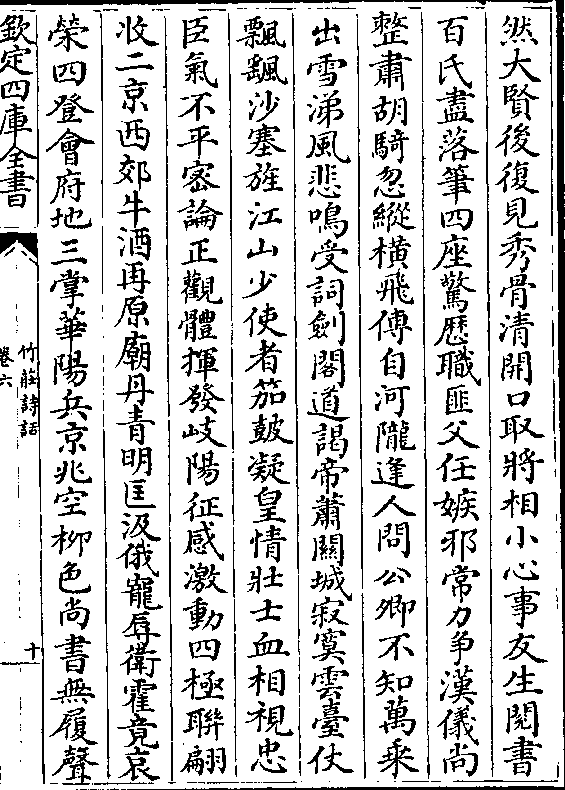 然大賢後復見秀骨清開口取將相小心事友生閱書
百氏盡落筆四座驚歷職匪父任嫉邪常力爭漢儀尚
整肅胡騎忽縱橫飛傳自河隴逢人問公卿不知萬乗
出雪涕風悲鳴受詞劍閣道謁帝蕭關城寂寞雲臺仗
飄飖沙塞旌江山少使者笳鼓凝皇情壯士血相視忠
臣氣不平宻論正觀體揮發岐陽征感激動四極聯翩
收二京西郊牛酒再原廟丹青明匡汲俄寵辱衛霍竟哀
榮四登會府地三掌華陽兵京兆空柳色尚書無履聲
欽定四庫全書
竹莊詩話
卷六
十